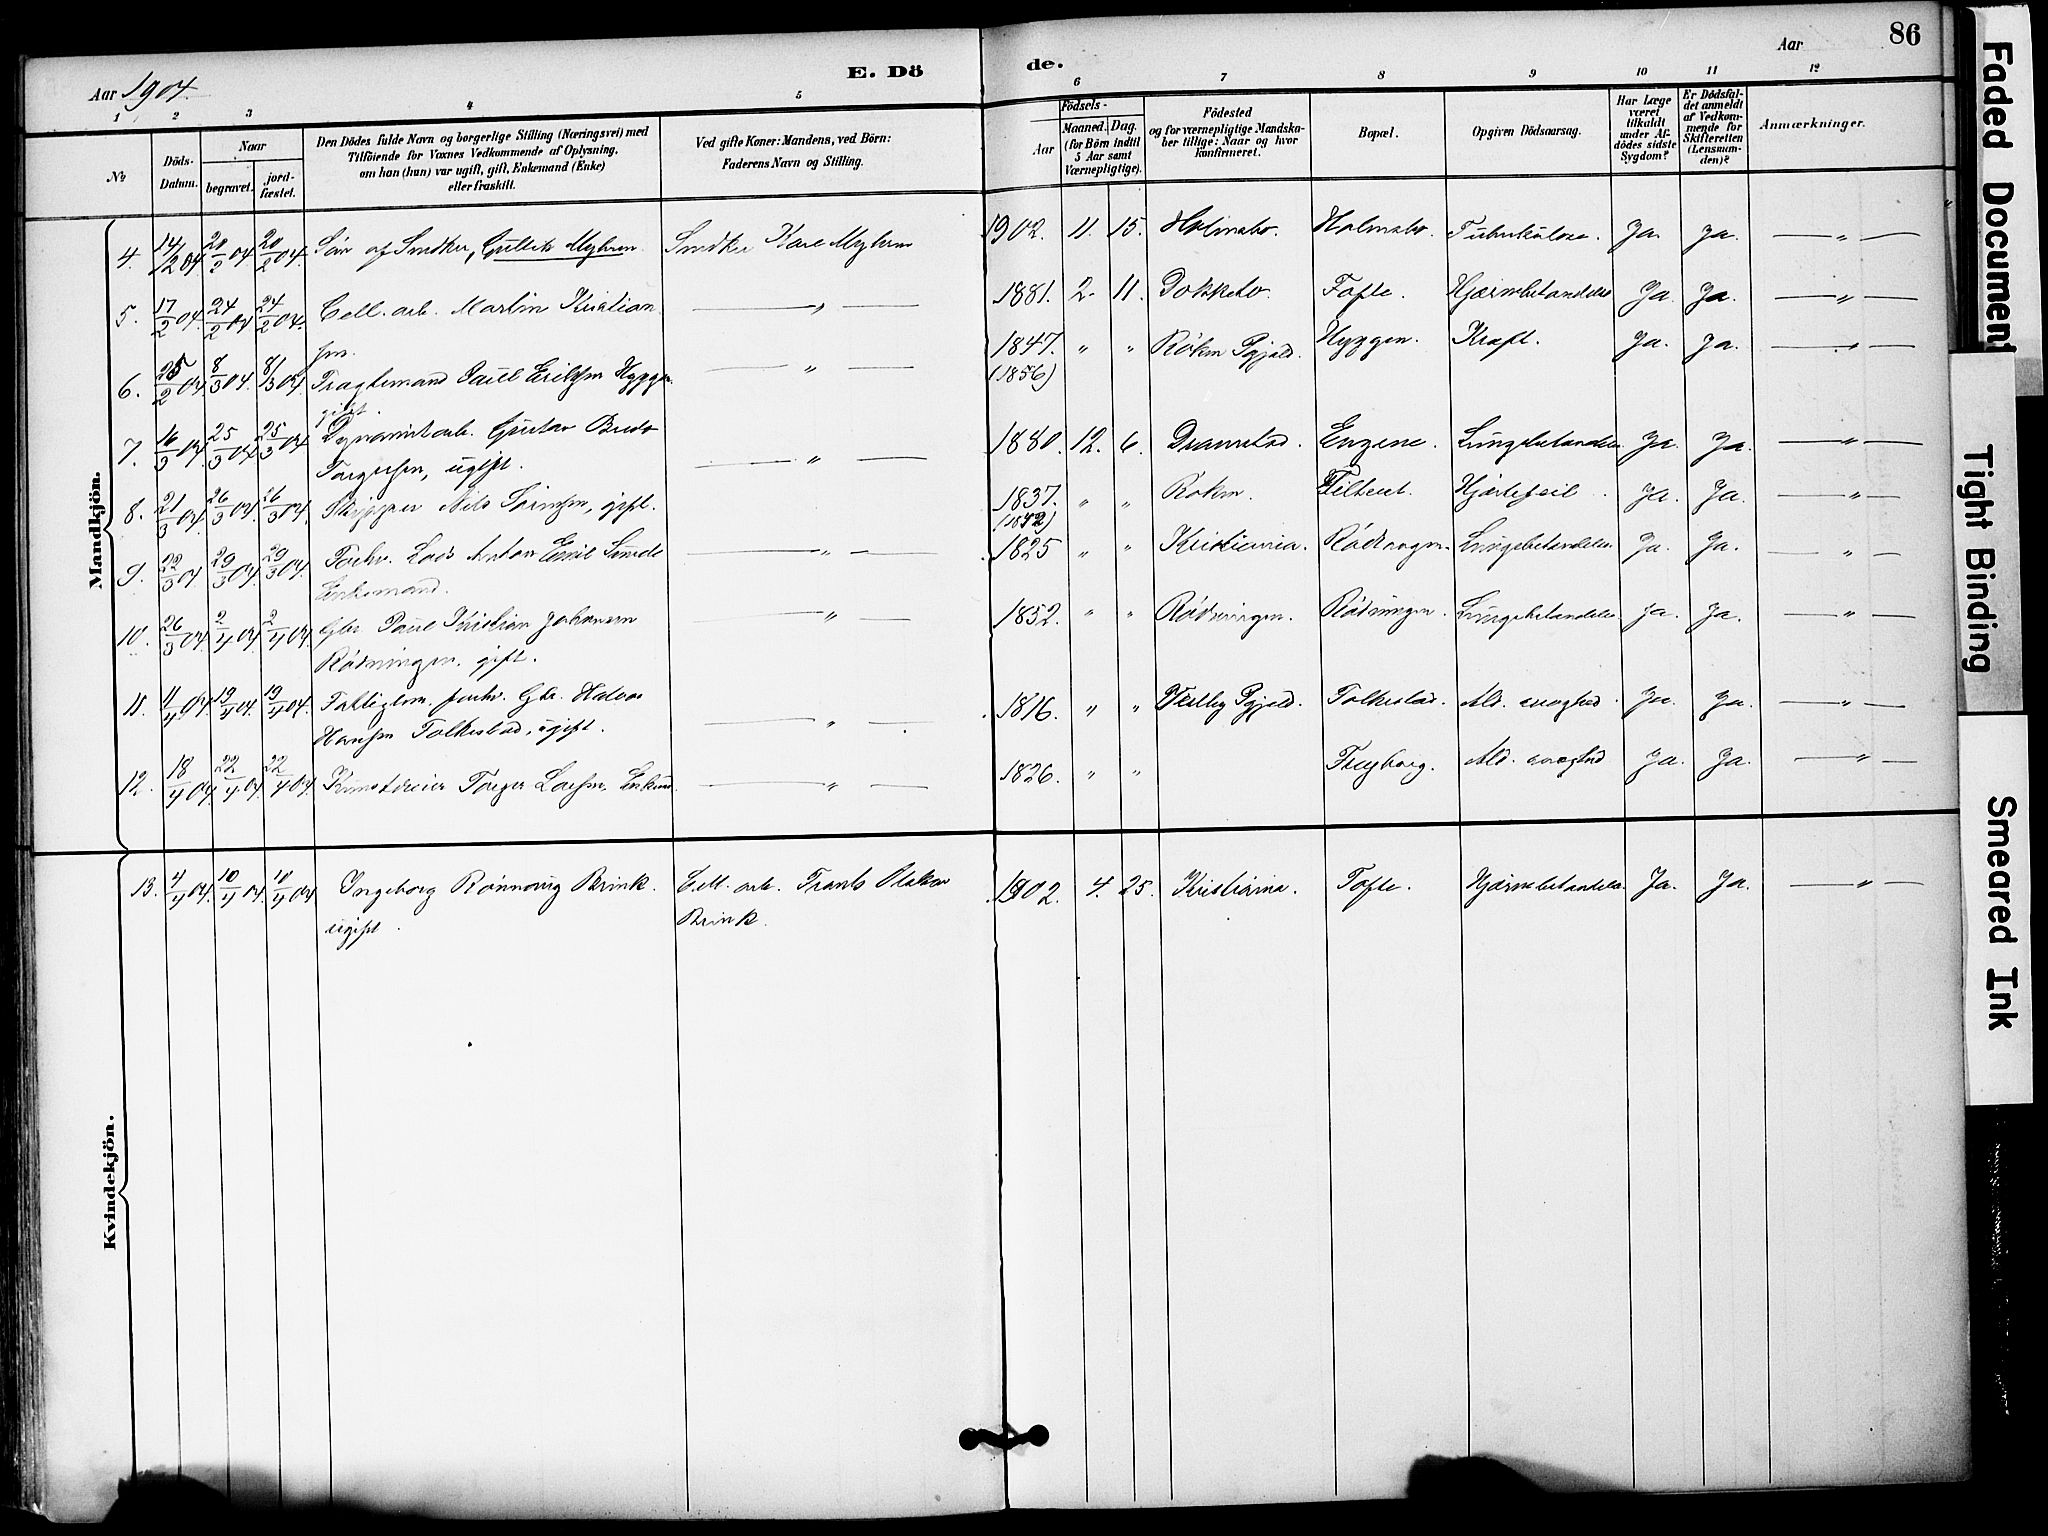 86
Aar 1904.
E. Dö
de.
Aar
1 2 3 4 5 6 7 8 9 10 11 12
No
Döds-Datum.
Naar
begravet.
jord-fæstet.
Den Dödes fulde Navn og borgerlige Stilling (Næringsvei) med
Tilföiende for Voxnes Vedkommende af Oplysning,
om han (hun) var ugift, gift, Enkemand (Enke)
eller fraskilt.
Ved gifte Koner: Mandens, ved Börn:
Faderens Navn og Stilling.
Födsels-
Aar
Maaned. Dag.
(for Börn indtil
5 Aar samt
Værnepligtige).
Födested
og for værnepligtige Mandska-
ber tillige: Naar og hvor
konfirmeret.
Bopæl.
Opgiven Dödsaarsag.
Har Læge
været
tilkaldt
under Af-
dödes sidste
Sygdom?
Er Dödsfal-
det anmeldt
af Vedkom-
mende for
Skifteretten
(Lensman-
den)?
Anmærkninger.
Mandkjön.
4. 14/2 04. 20/2 04 20/2 04. Sön af Snedker, Gullik Myhren. Snedker Karl Myhren 1902. 11. 15. Holmsbo. Holmsbo. Tuberkulose. Ja. Ja. — " —
5. 17/2 04. 24/2 04 24/2 04. Cell. arb. Martin Kristian- — " — 1881. 2. 11. Tofte. Hjærnebetændelse Ja. Ja. — " —
sen.
6. 25/2 04. 8/3 04. 8/3 04. Fragtemand Paul Eriksen Hyggen — " — 1847. " " Röken Pgjeld. Hyggen. Kræft. Ja. Ja. — " —
gift. (1856)
7. 16/3 04. 25/3 04 25/3 04 Dynamitarb. Gustav Bredo — " — 1880. 12. 6. Drammen. Engene. Lungebetændelse. Ja. Ja. — " —
Torgersen, ugift.
8. 21/3 04. 26/3 04. 26/3 04. Skipper Nils Sörensen, gift. 1837. " " Röken. Filtvet. Hjærtefeil. Ja. Ja. — " —
(1842)
9. 22/3 04. 29/3 04. 29/3 04. Forhv. Lods Anton Emil — " — 1825 " " Kristiania. Rödtangen. Lungebetændelse. Ja. Ja. — " —
Enkemand.
10. 26/3 04. 2/4 04. 2/4 04. Gbr. Paul Kristian Johansen — " — 1852. " " Rödningen. Rödningen. Lungebetændelse. Ja. Ja. — " —
Rödningen. gift.
11. 11/4 04. 19/4 04. 19/4 04. Fattiglem. forhv. Gbr. Halvor — " — 1816. " " Vestby Pgjeld. Folkestad. Ald. svaghed. Ja. Ja. — " —
Hansen Folkestad, ugift.
12. 18/4 04. 22/4 04. 22/4 04. Kunstdreier Torger Larsen. Enkem. — " — 1826. " " Freyborg. Ald. svaghed Ja. Ja. — " —
Kvindekjön.
13. 4/4 04. 10/4 04. 10/4 04 Ingeborg Rönnoug Brink. Cell. arb. Frants Oskar 1902. 4. 25. Kristiania. Tofte. Hjærnebetændelse. Ja. Ja. — " —
ugift. Brink.
Faded Document
Tight Binding
Smeared Ink